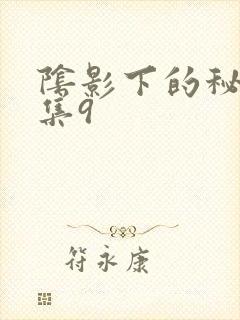 陰影下的秘
集9
符永康